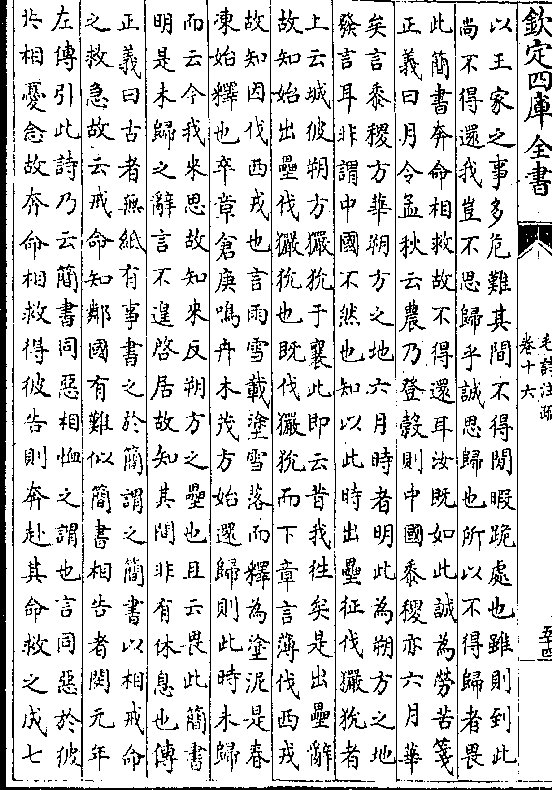 欽定四庫全書
毛詩注疏
卷十六
五十四
以王家之事多危難其間不得閒暇跪處也雖則到此
尚不得還我豈不思歸乎誠思歸也所以不得歸者畏
此簡書奔命相救故不得還耳汝既如此誠為勞苦箋
正義曰月令孟秋云農乃登糓則中國黍稷亦六月華
矣言黍稷方華朔方之地六月時者明此為朔方之地
發言耳非謂中國不然也知以此時出壘征伐玁狁者
上云城彼朔方玁狁于襄此即云昔我往矣是出壘辭
故知始出壘伐玁狁也既伐玁狁而下章言薄伐西戎
故知因伐西戎也言雨雪載塗雪落而釋為塗泥是春
凍始釋也卒章倉庚鳴卉木茂方始還歸則此時未歸
而云今我來思故知來反朔方之壘也且云畏此簡書
明是未歸之辭言不遑啓居故知其間非有休息也傳
正義曰古者無紙有事書之於簡謂之簡書以相戒命
之救急故云戒命知鄰國有難似簡書相告者閔元年
左傳引此詩乃云簡書同惡相恤之謂也言同惡於彼
共相憂念故奔命相救得彼告則奔赴其命救之成七